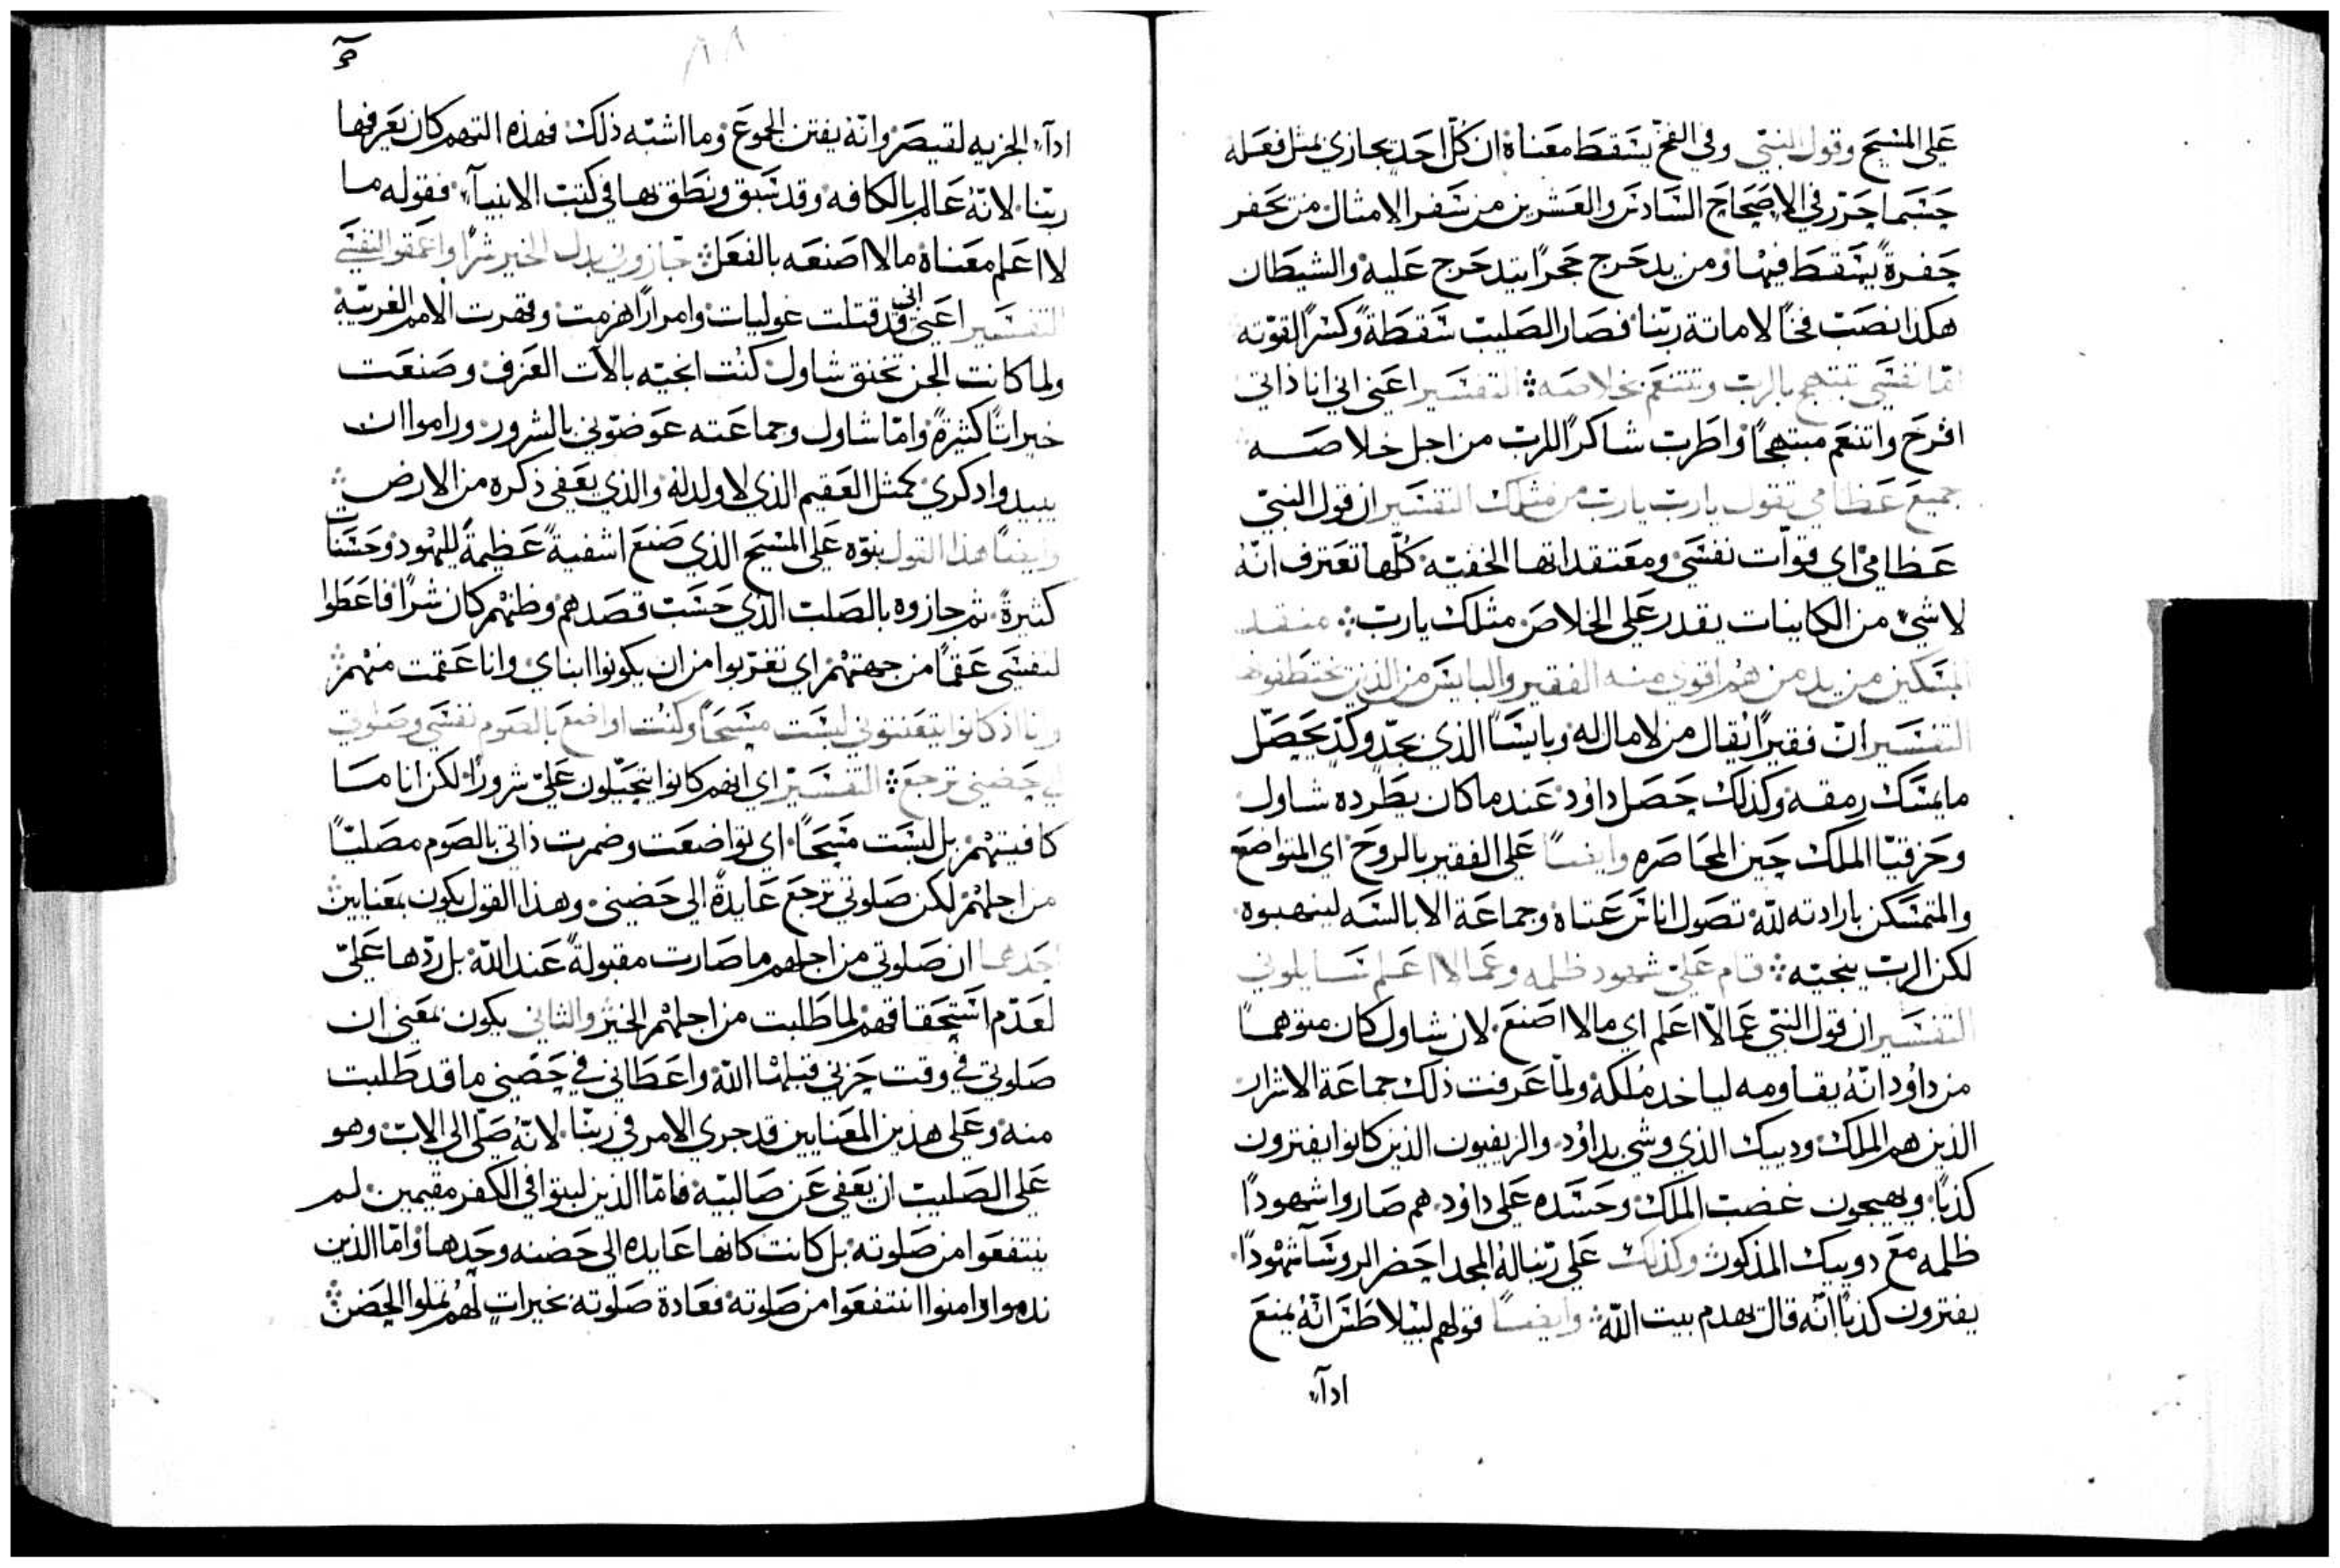 على المسيح وقول النبي وفي الفخ يسقط معناه ان كل احد يجازى بمثل فعله
حسبما حرر في الاصحاح السادس والعشرين من سفر الامثال من يحفر
حفرةً يسقط فيها ومن يدحرج حجرًا يتدحرج عليه والشيطان
هكذا نصب فخًا لاماتة ربنا فصار الصليب سقطةً وكسرًا لقوته
امّا نفسي تبتهج بالرب وتتنعم بخلاصه التفسير اعني اني انا ذاتي
افرح واتنعم مبتهجًا واطرب شاكرًا للرب من اجل خلاصه
جميع عظامي تقول يارب يارب من مثلك التفسير ان قول النبي
عظامي اي قوات نفسي ومعتقداتها الخفيه كلها تعترف انه
لا شي من الكاينات يقدر على الخلاص مثلك يارب منقذ
المسكين من يد من هم اقوى منه الفقير والبايس من الذين يختطفونه
التفسير ان فقيرًا يقال من لا مال له وبايسًا الذي بجدّ وكدّ يحصّل
ما يمسك رمقه وكذلك حصل داوُد عند ما كان يطرده شاول
وحزقيا الملك حين المحاصره وايضًا على الفقير بالروح اي المتواضع
والمتمسكن بارادته لله تصول اناس عتاه وجماعة الابالسه لينهبوه
لكن الرب ينجيه قام عليّ شهود ظلمه وعمّا لا اعلم سايلوني
التفسير ان قول النبي عمّا لا اعلم اي ما لا اصنع لان شاول كان متوهمًا
من داوُد انّهُ يقاومه لياخد مُلكه ولمّا عرفت ذلك جماعة الاشرار
الذين هم الملك ودييك الذي وشي بداوُد والزيفيون الذين كانوا يفترون
كذبًا ويهيجون غضب الملك وحسده على داوُد هم صاروا شهودًا
ظلمه مع دوييك المذكور وكذلك على ربنا لهُ المجد احضر الروسآ شهودًا
يفترون كذبًا انّه قال يهدم بيت الله وايضًا قولهم لبيلاطس انّهُ يمنع
ادآء
ادآء الجزيه لقيصر وانّه يفتن الجموع وما اشبه ذلك فهذه التهم كان يعرفها
ربنا لانّهُ عالم بالكافه وقد سبق ونطق بها في كتب الانبيآء فقوله ما
لا اعلم معناه ما لا اصنعه بالفعل جازوني بدل الخير شرًا واعقموا نفسي
التفسير اعني اني قد قتلت غوليات وامرارًا هزمت وقهرت الامم الغريبة
ولما كانت الجن تخنق شاول كنت انجيّه بالات العزف وصنعت
خيراتًا كثيرةً وامّا شاول وجماعته عوضوني بالشرور وراموا ان
يبيدوا ذكري كمثل العقيم الذي لا ولد لهُ والذي يعفي ذكره من الارض
وايضًا هذا القول ينوّه على المسيح الذي صنع اشفيةً عظيمةً لليهود وحسنات
كثيرةً ثم جازوه بالصلب الذي حسب قصدهم وظنهم كان شرًا فاعطوا
لنفسي عقمًا من جهتهم اي تغربوا من ان يكونوا ابناي وانا عقمت منهم
وانا اذ كانوا يتعنتوني لبست مسحًا وكنت اواضع بالصوم نفسي وصلوتي
الى حضني ترجع التفسير اي انهم كانوا يتحيّلون عليّ شرورًا لكن انا ما
كافيتهم بل لبست مسحًا اي تواضعت وضمرت ذاتي بالصوم مصليًا
من اجلهم لكن صلوتي ترجع عايدةً الى حضني وهذا القول يكون بمعنايين
احدهما ان صلوتي من اجلهم ما صارت مقبولةً عند الله بل ردّها عليّ
لعدم استحقاقهم لما طلبت من اجلهم الخير والثاني يكون بمعنى ان
صلوتي في وقت حزني قبلها الله واعطاني في حضني ما قد طلبت
منه وعلى هذين المعنايين قد جرى الامر في ربنا لانّهُ صلّى الى الاب وهو
على الصليب ان يعفي عن صالبيه فامّا الذين لبثوا في الكفر مقيمين لم
ينتفعوا من صلوته بل كانت كانها عايده الى حضنه وحدها وامّا الذين
ندموا وامنوا انتفعوا من صلوته فعادة صلوته بخيراتٍ لهُم تملوا الحضن